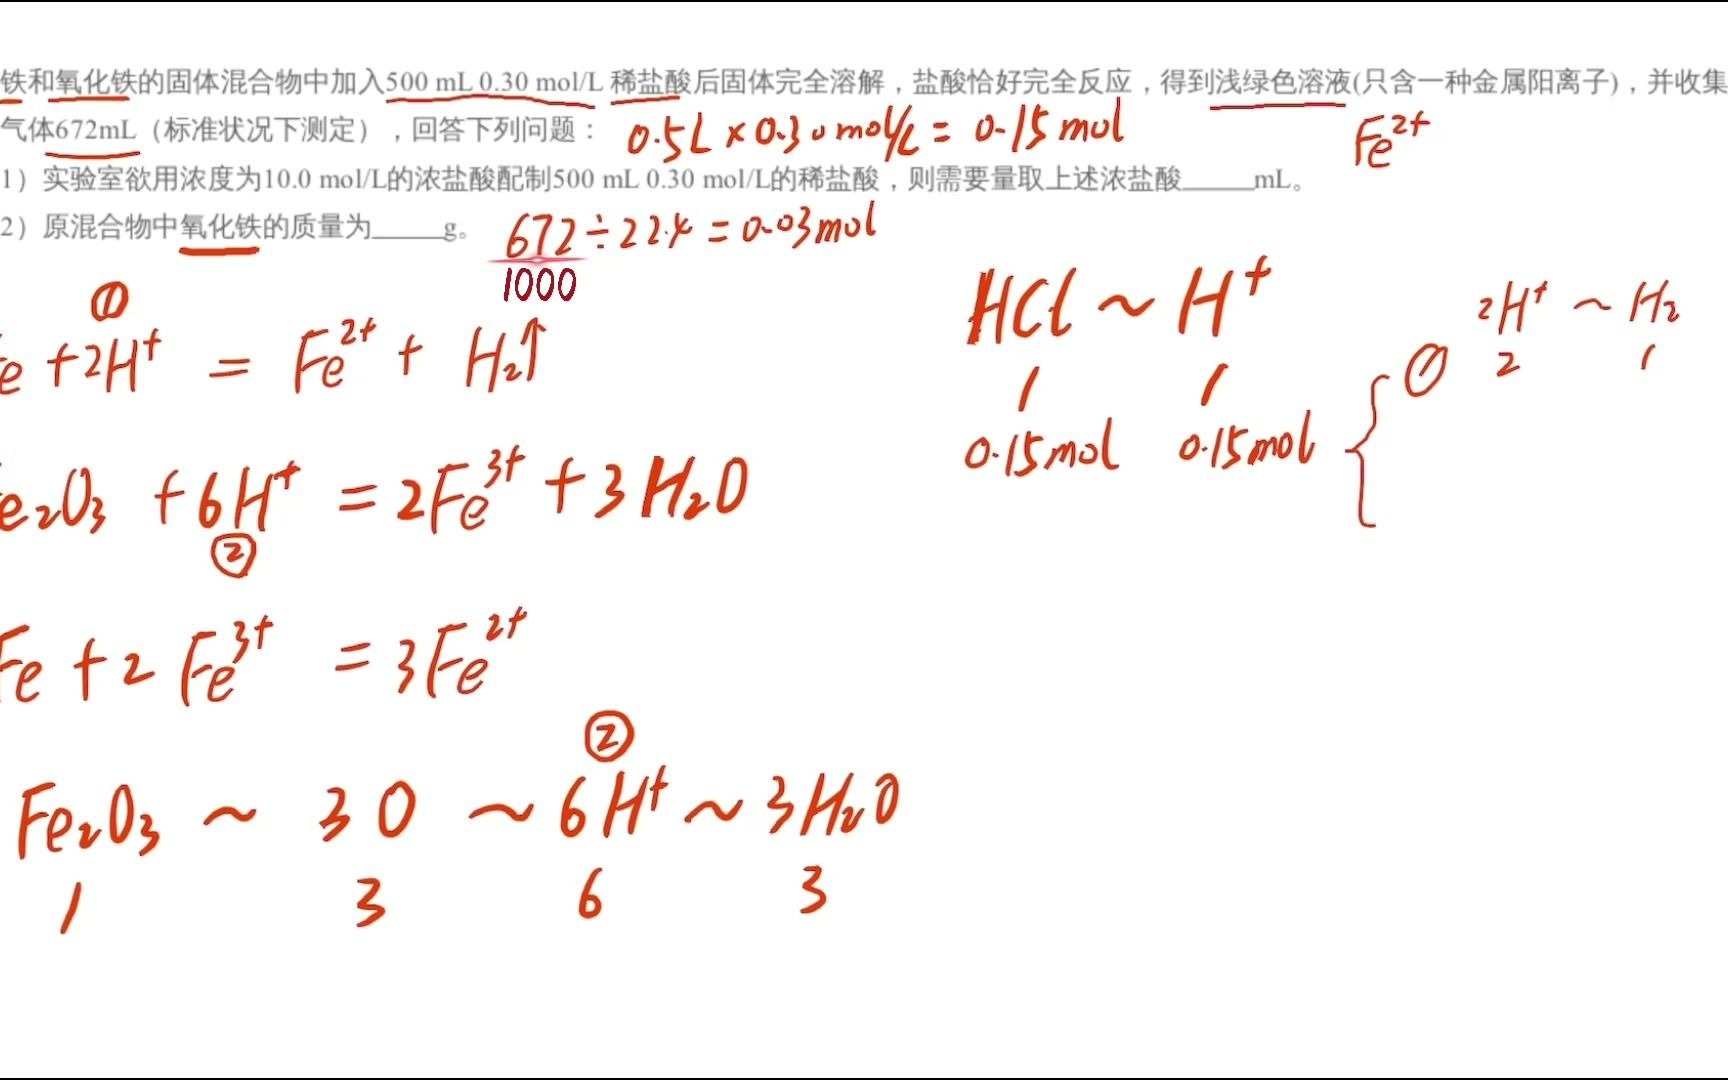 铁和氧化铁的固体混合物中加入500 mL 0.30 mol/L 稀盐酸后固体完全溶解，盐酸恰好完全反应，得到浅绿色溶液(只含一种金属阳离子)，并收集
气体672mL（标准状况下测定），回答下列问题：
0.5L × 0.30mol/L = 0.15mol
Fe²⁺
1）实验室欲用浓度为10.0 mol/L的浓盐酸配制500 mL 0.30 mol/L的稀盐酸，则需要量取上述浓盐酸_____mL。
2）原混合物中氧化铁的质量为_____g。
672/1000 ÷ 22.4 = 0.03mol
①
e + 2H⁺ = Fe²⁺ + H₂↑
HCl ~ H⁺
1 1
0.15mol 0.15mol
① 2H⁺ ~ H₂
2 1
e₂O₃ + 6H⁺ = 2Fe³⁺ + 3H₂O
②
Fe + 2Fe³⁺ = 3Fe²⁺
②
Fe₂O₃ ~ 3O ~ 6H⁺ ~ 3H₂O
1 3 6 3